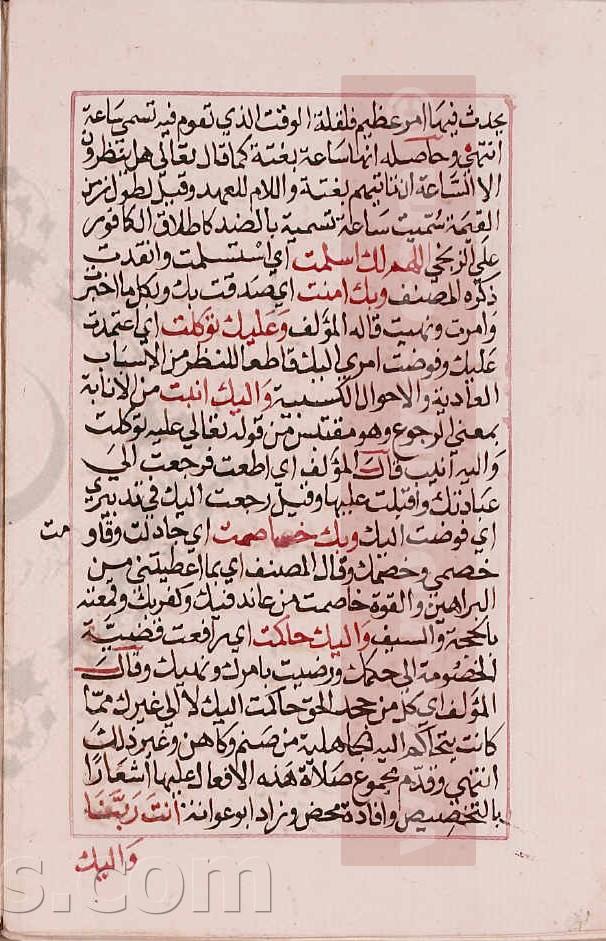 يحدث فيها امر عظيم فلقلة الوقت الذي تقوم فيه تسمى ساعة
انتهى وحاصله انها ساعة بغتة كما قال تعالى هل ينظرون
الا الساعة ان تاتيهم بغتة واللام للعهد وقيل لطول زمن
القيمة سميت ساعة تسمية بالضد كاطلاق الكافور
على الزنجي اللهم لك اسلمت اي استسلمت وانقدت
ذكره المصنف وبك امنت اي صدقت بك وبكل ما اخبرت
وامرت ونهيت قاله المؤلف وعليك توكلت اي اعتمدت
عليك وفوضت امري اليك قاطعا للنظر من الاسباب
العادية والاحوال الكسبية واليك انبت من الانابة
بمعنى الرجوع وهو مقتبس من قوله تعالى عليه توكلت
واليه انيب قال المؤلف اي اطعت فرجعت الى
عبادتك واقبلت عليها وقيل رجعت اليك في تدبيري
اي فوضت اليك وبك خاصمت اي جادلت وقاومت
خصمي وخصمك وقال المصنف اي بما اعطيتني من
البراهين والقوة خاصمت من عاند فيك وكفر بك وقمعته
بالحجة والسيف واليك حاكمت اي رافعت قضية
الخصومة الى حكمك ورضيت بامرك ونهيك وقال
المؤلف اي كل من جحد الحق حاكمت اليك لا الى غيرك مما
كانت يتحاكم اليه الجاهلية من صنم وكاهن وغير ذلك
انتهى وقدم مجموع صلاة هذه الافعال عليها اشعارا
بالتخصيص وافادة محض وزاد ابو عوانة انت ربنا
واليك
s.com